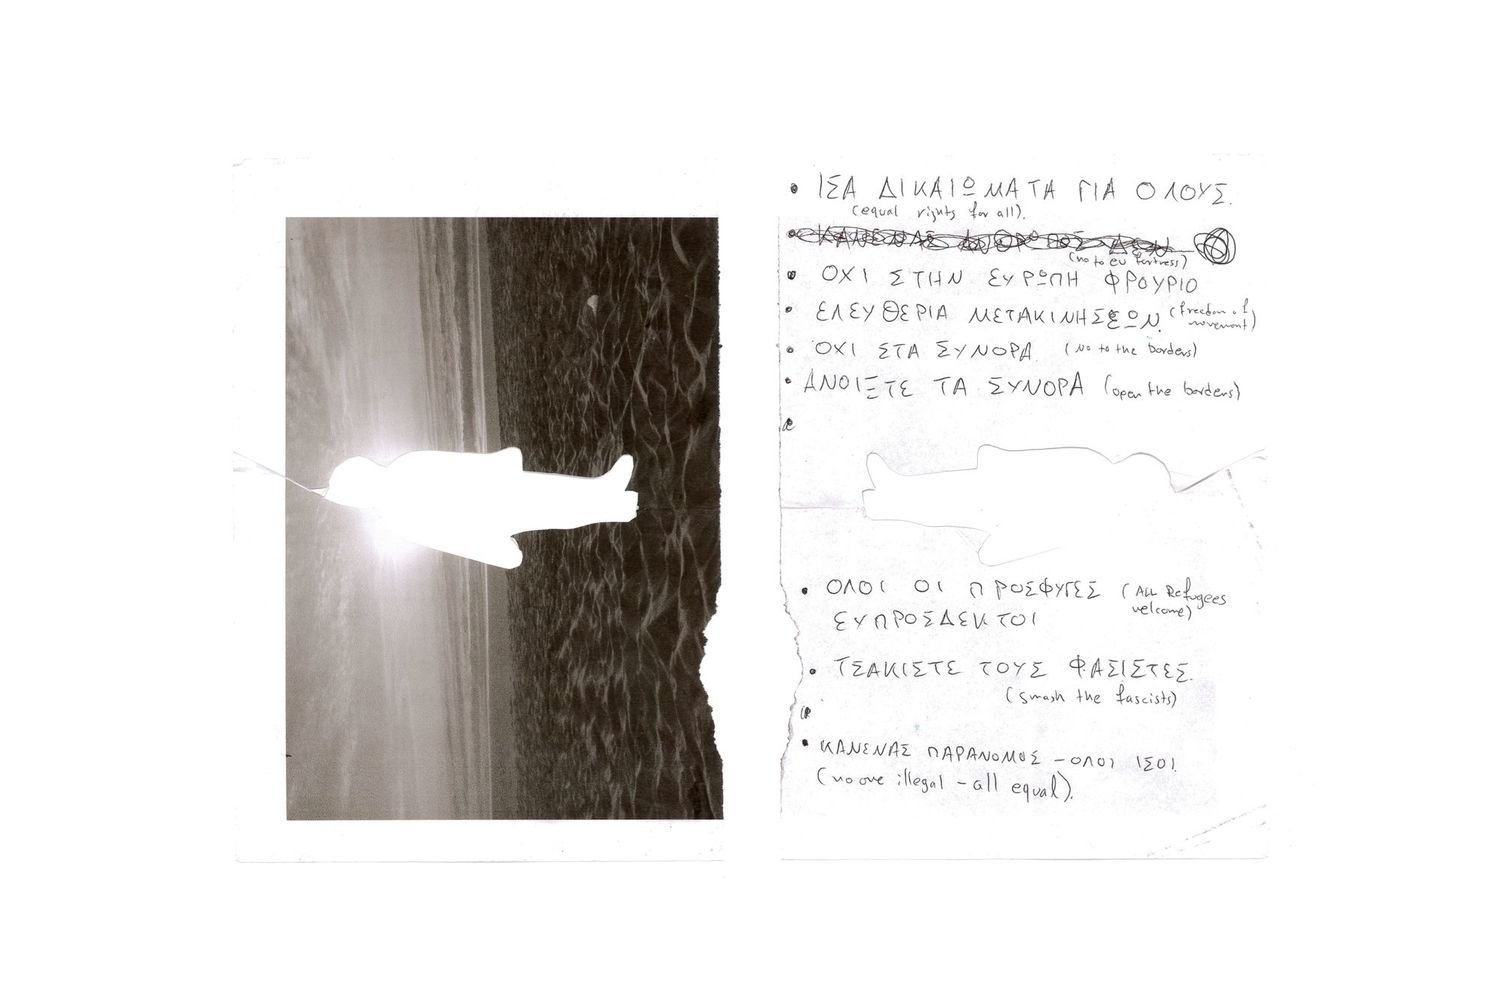 • ΙΣΑ ΔΙΚΑΙΩΜΑΤΑ ΓΙΑ ΟΛΟΥΣ.
(equal rights for all).
• ΚΑΝΕΝΑΣ ΑΝΘΡΩΠΟΣ ΔΕΝ
(no to eu fortress)
• ΟΧΙ ΣΤΗΝ ΕΥΡΩΠΗ ΦΡΟΥΡΙΟ
• ΕΛΕΥΘΕΡΙΑ ΜΕΤΑΚΙΝΗΣΕΩΝ. (freedom of
movement)
• ΟΧΙ ΣΤΑ ΣΥΝΟΡΑ (No to the borders)
• ΑΝΟΙΞΤΕ ΤΑ ΣΥΝΟΡΑ (open the borders)
• ΟΛΟΙ ΟΙ ΠΡΟΣΦΥΓΕΣ (ALL Refugees
welcome)
ΕΥΠΡΟΣΔΕΚΤΟΙ
• ΤΣΑΚΙΣΤΕ ΤΟΥΣ ΦΑΣΙΣΤΕΣ.
(smash the fascists)
• ΚΑΝΕΝΑΣ ΠΑΡΑΝΟΜΟΣ – ΟΛΟΙ ΙΣΟΙ.
(no one illegal – all equal).